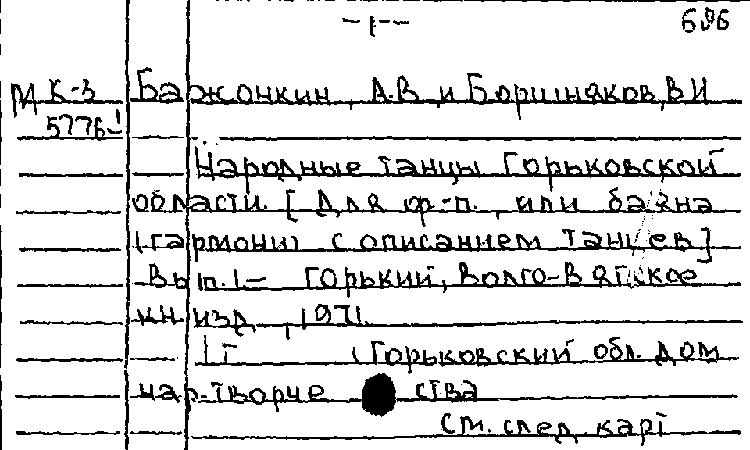 - 1 -- 696
М К-3 Бажонкин, А.В. и Боршняков, В.И
5776-1
Народные танцы Горьковской
области. [Для ф.-п., или баяна
(гармони) с описанием танцев]
Вып.1 - Горький, Волго-Вятское
кн. изд., 1971.
1 г (Горьковский обл. дом
нар. творче ства
См. след. карт